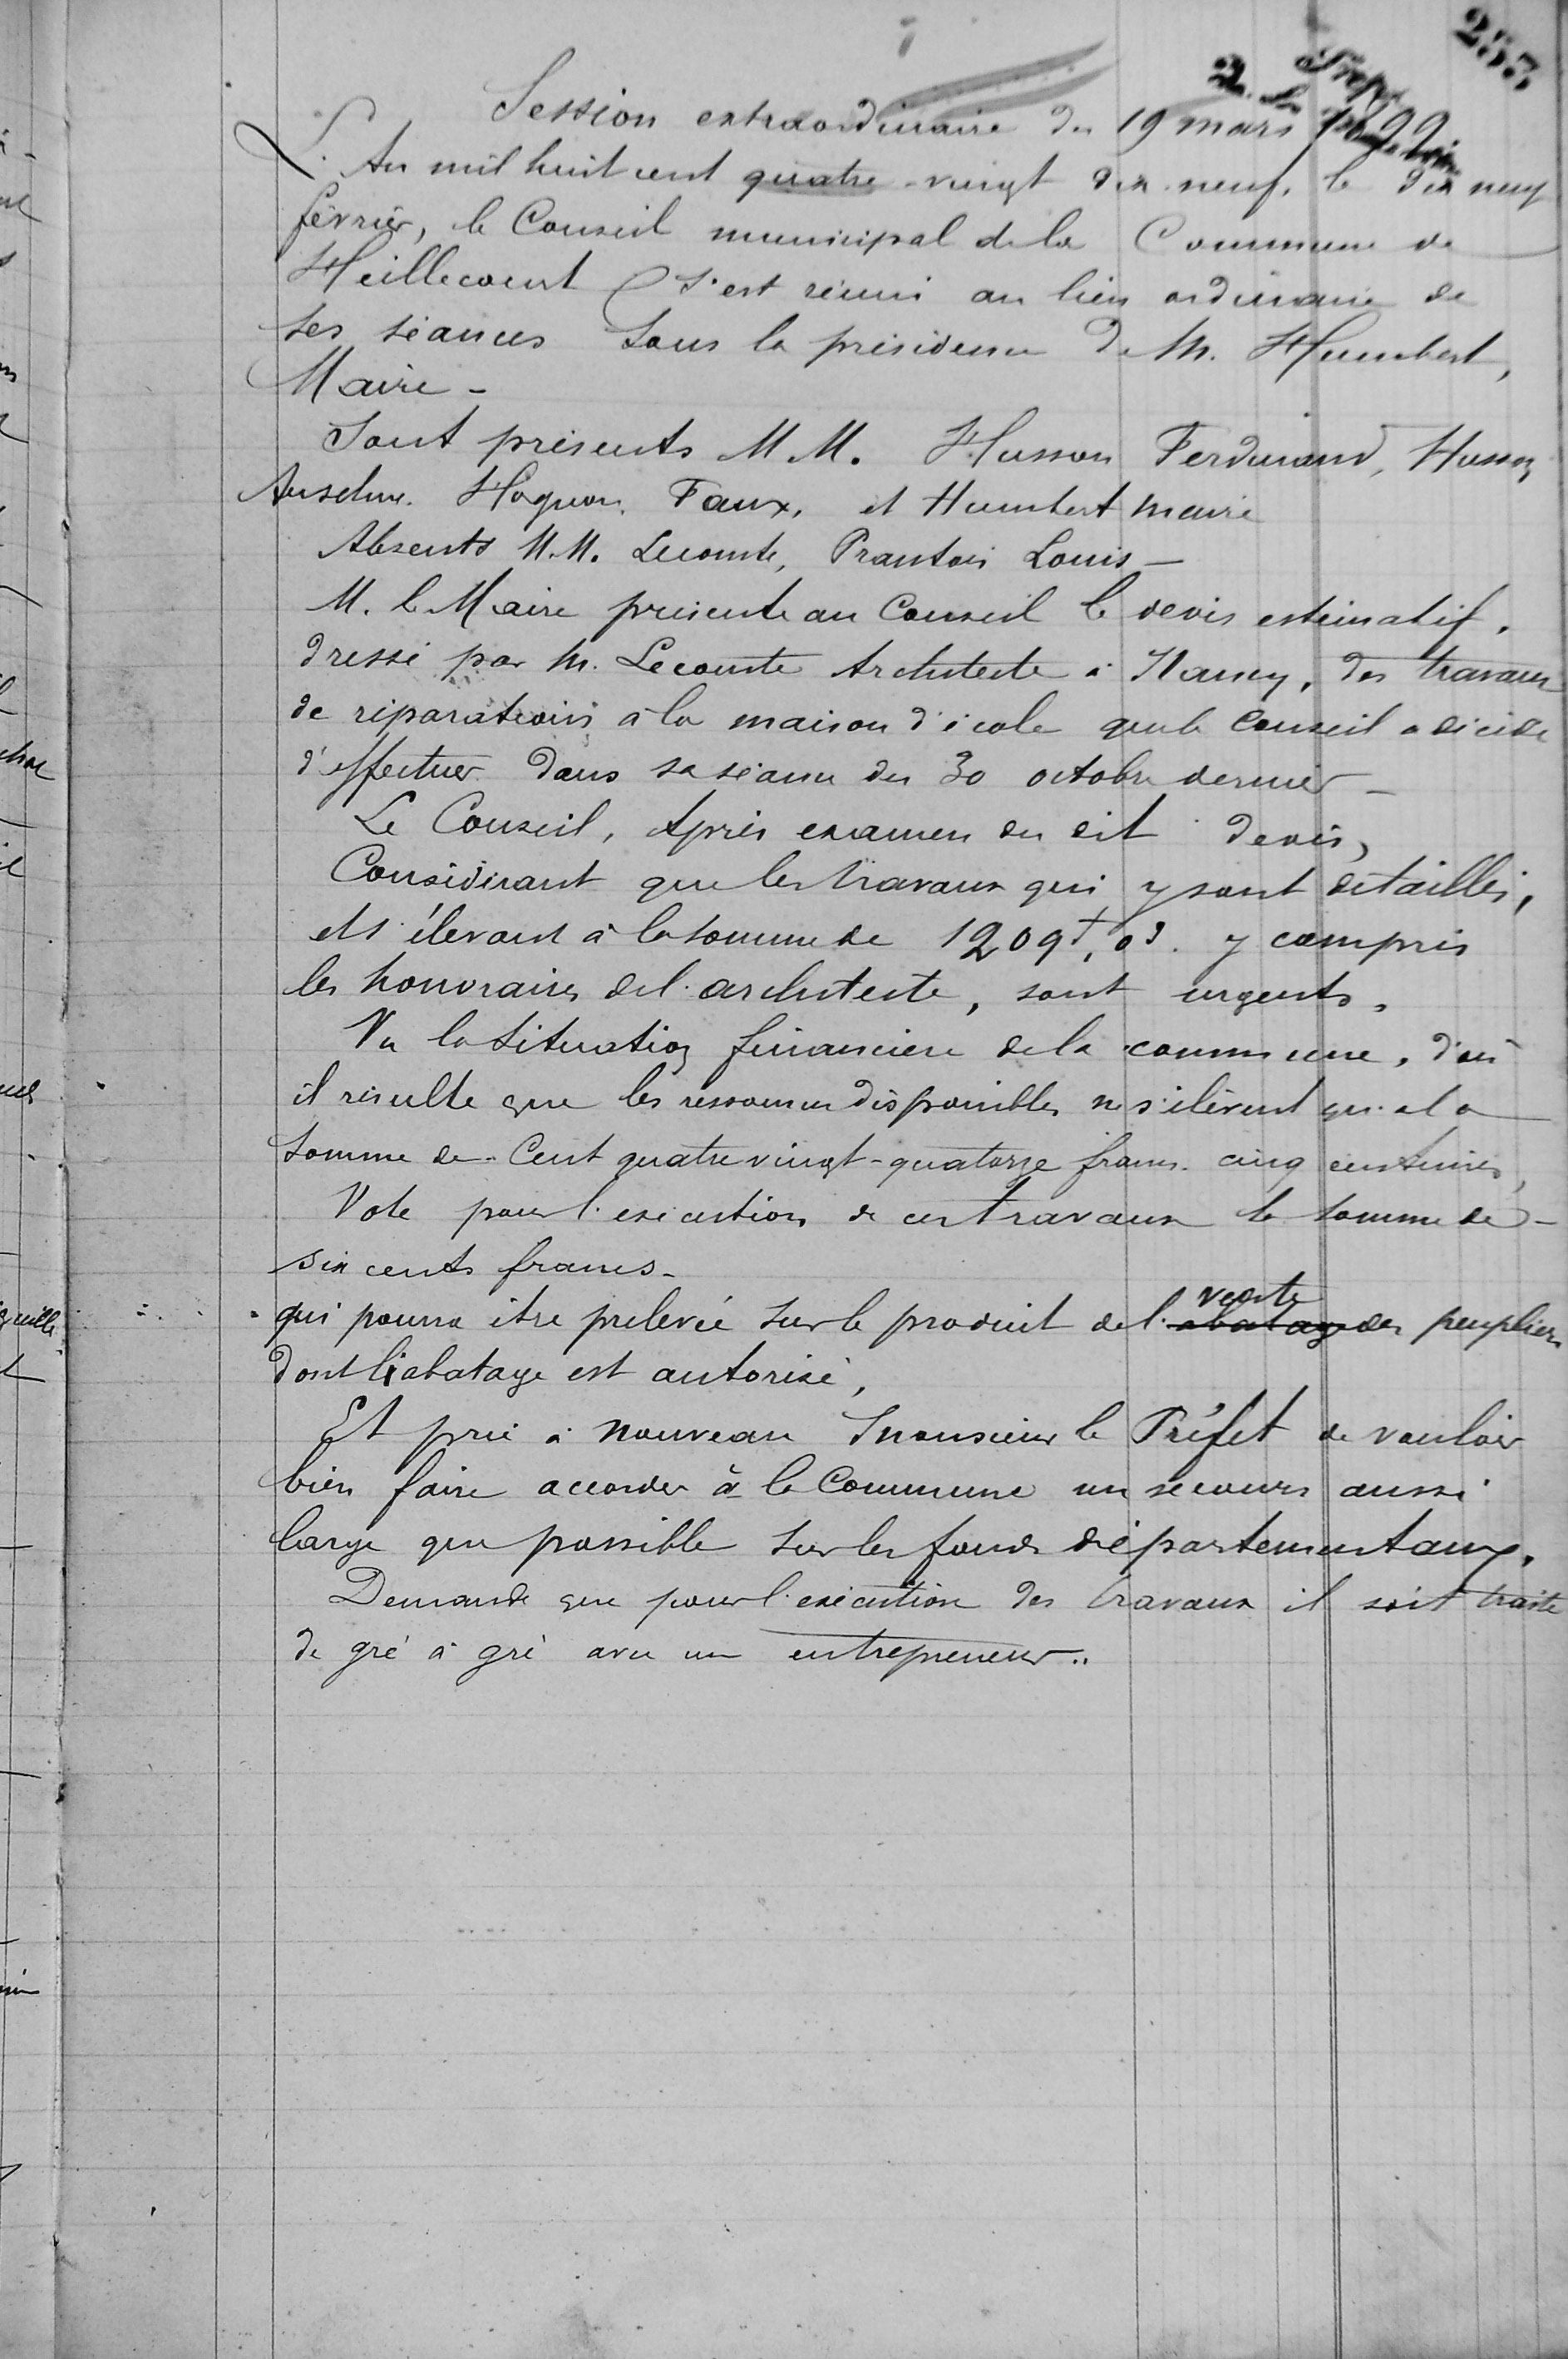 253
Session extraordinaire du 19 mars 1899
L'An mil huit cent quatre-vingt dix neuf, le dix neuf
février, le Conseil municipal de la Commune de
Heillecourt s'est réuni au lieu ordinaire de
ses séances sous la présidence de M. Humbert,
Maire -
Sont présents M.M. Husson Ferdinand, Husson
Anselme. Hoquon, Faux, et Humbert maire
Absents M.M. Lecomte, Prantois Louis -
M. le Maire présente au Conseil le devis estimatif,
dressé par M. Lecomte Architecte à Nancy, des travaux
de réparations à la maison d'école que le Conseil a décidé
d'effectuer dans sa séance du 30 octobre dernier -
Le Conseil, Après examen du dit devis,
Considérant que les travaux qui y sont détaillés,
et s'élevant à la somme de 1209f,03. y compris
les honoraires de l'architecte, sont urgents,
Vu la Situation financière de la commune, d'où
il résulte que les ressources disponibles ne s'élèvent qu'à la
somme de - Cent quatre vingt-quatorze francs cinq centimes,
Vote pour l'exécution de ces travaux la somme de -
six cents francs -
qui pourra être prélevée sur le produit de l'abatage vente des peupliers
dont l'abatage est autorisé,
Et prie à nouveau Monsieur le Préfet de vouloir
bien faire accorder à la Commune un secours aussi
large que possible sur les fonds départementaux.
Demande que pour l'exécution des travaux il soit traité
de gré à gré avec un entrepreneur..